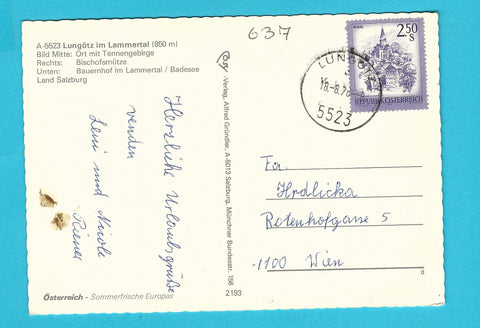 A-5523 Lungötz im Lammertal (850 m)
Bild Mitte: Ort mit Tennengebirge
Rechts: Bischofsmütze
Unten: Bauernhof im Lammertal / Badesee
Land Salzburg
637
LUNGÖTZ
18.-8.78
5523
2.50
S
REPUBLIK ÖSTERREICH
Herzliche Urlaubsgrüße
senden
Leni und Nicole
Cosy-Verlag, Alfred Gründler, A-5013 Salzburg, Münchner Bundesstr. 156
2193
Fa.
Hrdlicka
Rotenhofgasse 5
1100 Wien
Österreich - Sommerfrische Europas